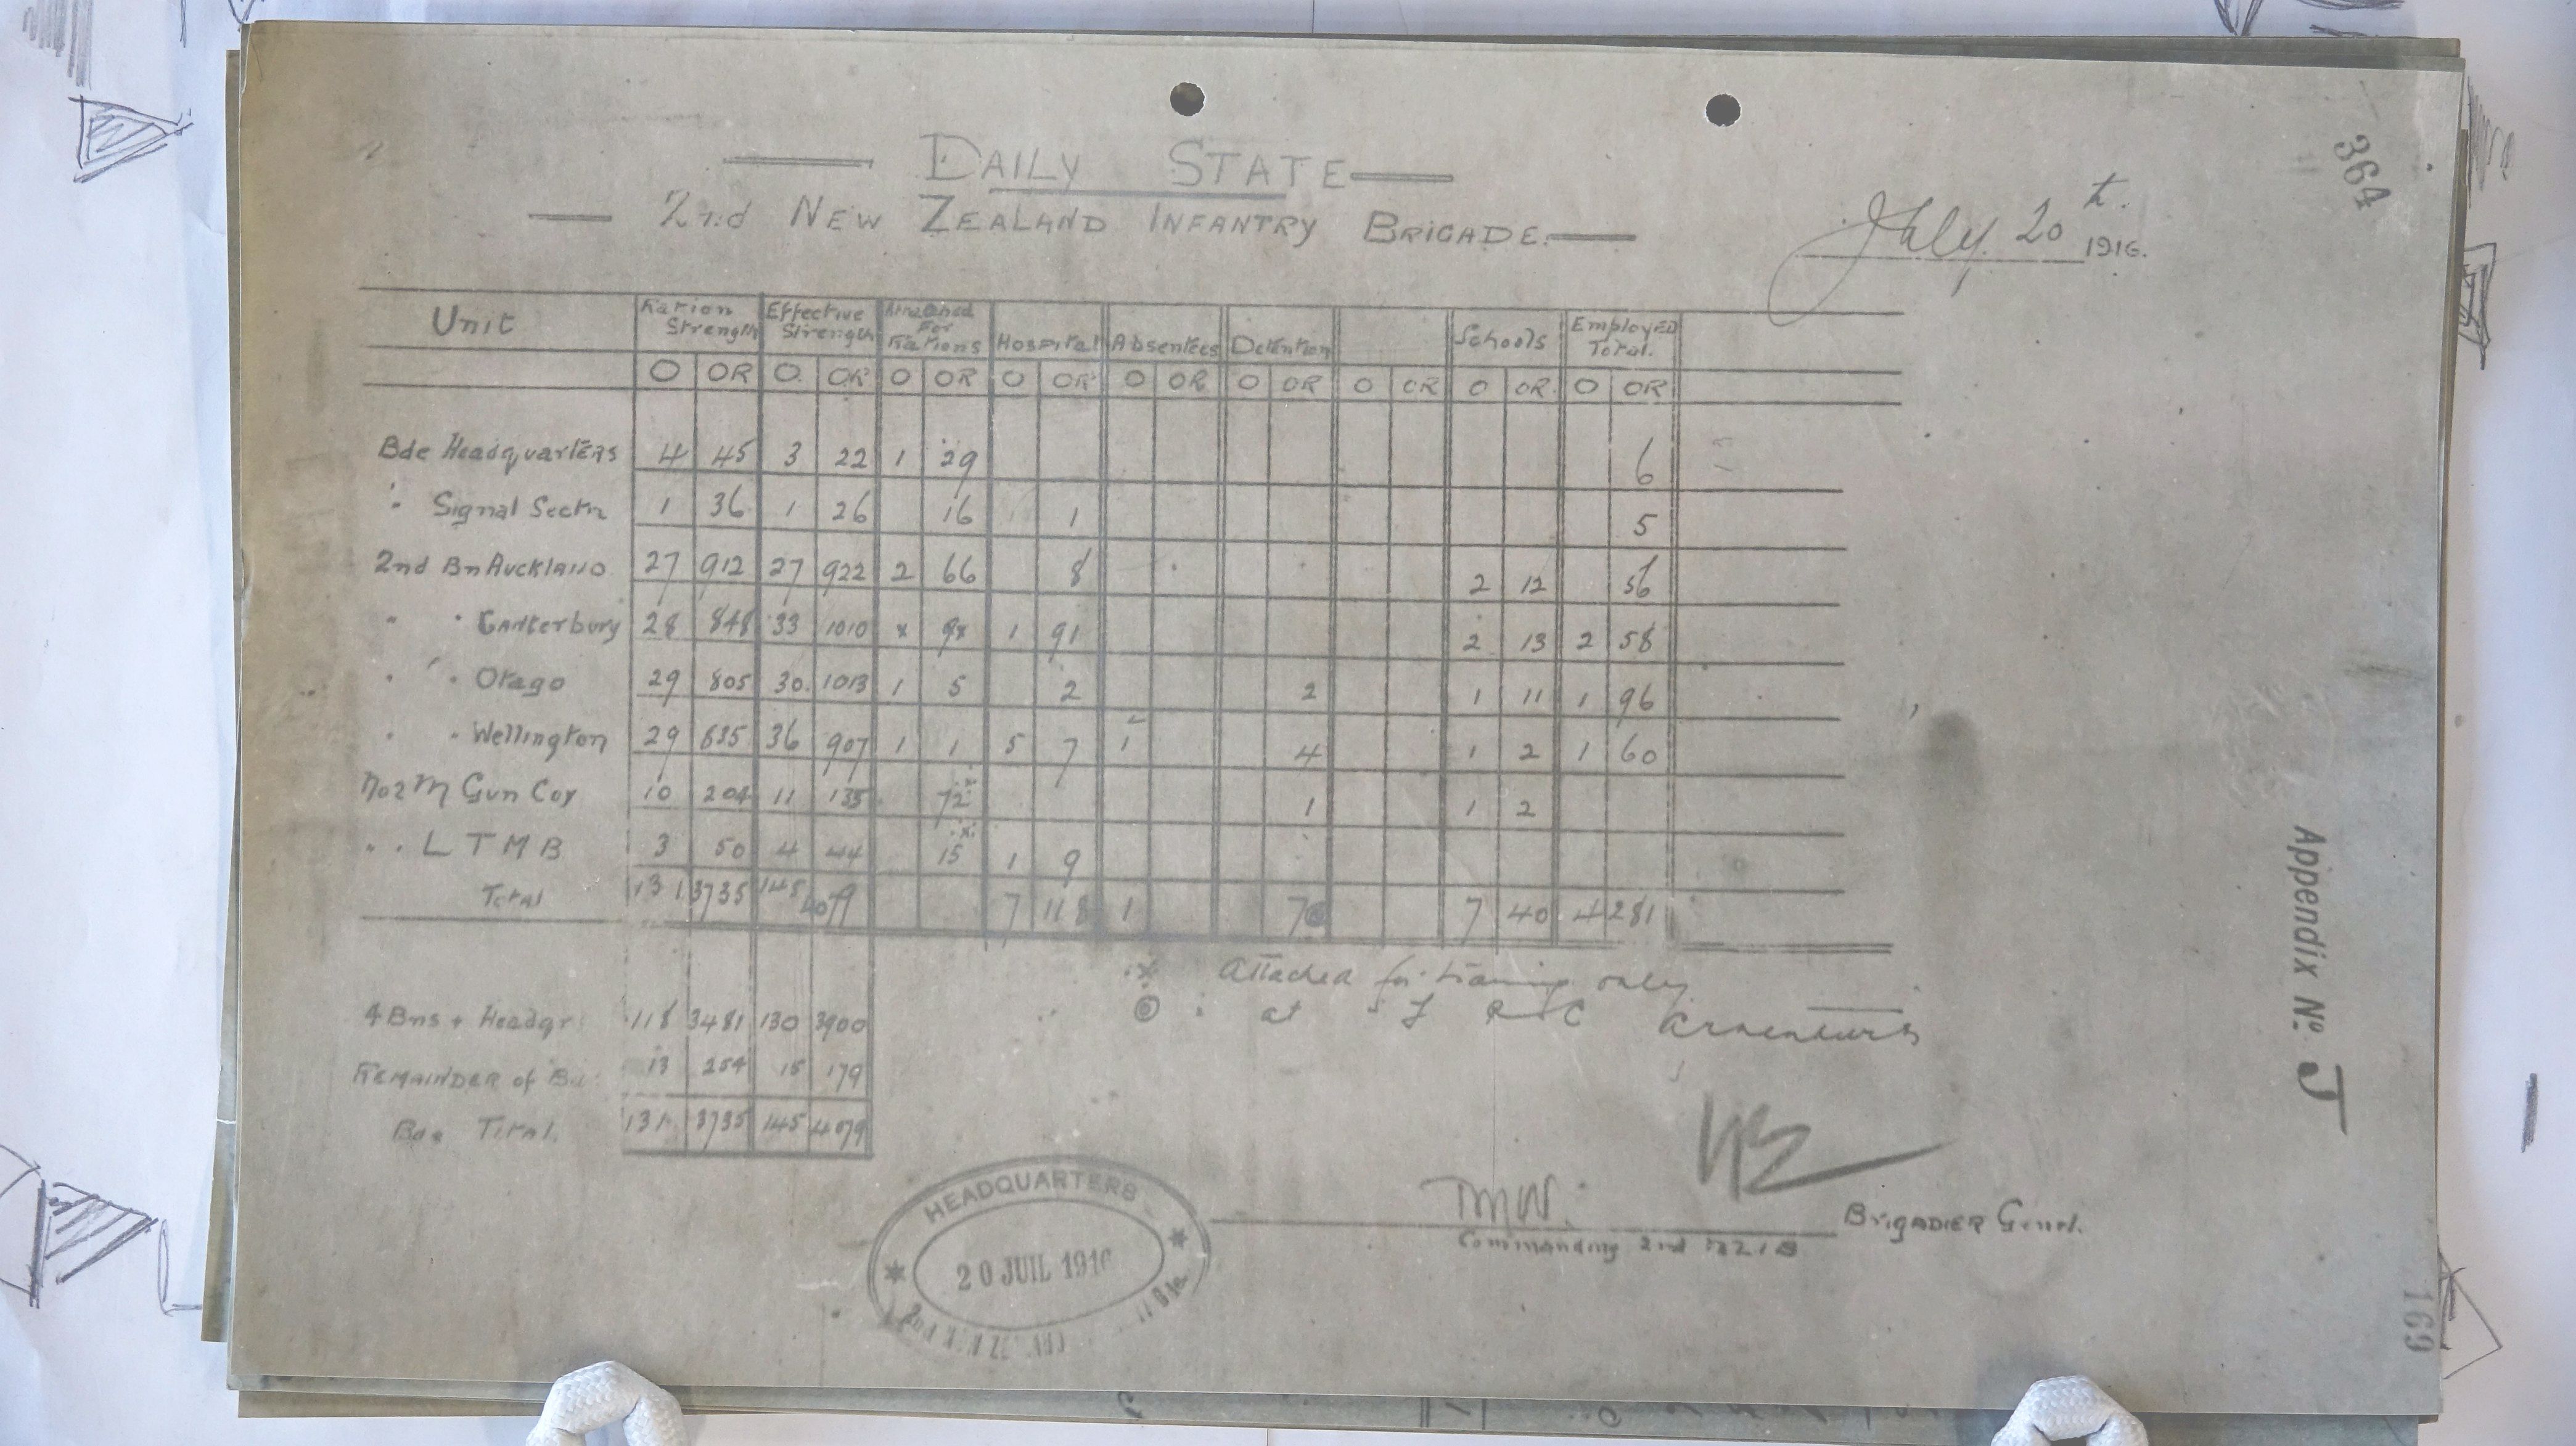 364
DAILY STATE
2nd NEW ZEALAND INFANTRY BRIGADE.
July 20th. 1916.
Unit Ration Strength Effective Strength Attached For Rations Hospital Absentees Detention Schools Employed Total.
O OR O OR O OR O OR O OR O OR O OR O OR O OR
Bde Headquarters 4 45 3 22 1 29 6
" Signal Sectn 1 36 1 26 16 1 5
2nd Bn Auckland 27 912 27 922 2 66 8 2 12 56
" " Canterbury 28 848 33 1010 x 9x 1 91 2 13 2 58
" " Otago 29 805 30 1013 1 5 2 2 1 11 1 96
" " Wellington 29 835 36 907 1 1 5 7 1 4 1 2 1 60
No 2 M Gun Coy 10 204 11 135 72 x 1 1 2
" " L T M B 3 50 4 44 15 x 1 9
Total 131 3735 145 4079 7 118 1 7 7 40 4 281
x Attached for training only
at
4 Bns + Headqr 118 3481 130 3900
Remainder of 13 254 15 179
Bde Total. 131 3735 145 4079
Appendix No. J
TMW.
BRIGADIER Genrl.
Commanding 2nd NZIB
HEADQUARTERS
20 JUIL 1916
169